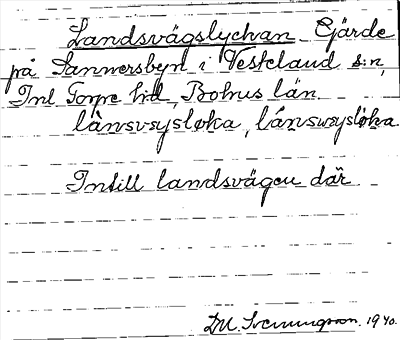 Landsvägslyckan Gärde
på Sannersbyn i Vestelaud s:n,
Inl Torpe hd, Bohus län.
lànsvsysløka, lánswsysløka.
Intill landsvägen där
DM. Svenningsson. 1940.